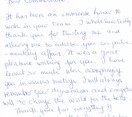 Dear Commissioner,
It has been an immense honour to
work in your team. I wholeheartedly
thank you for trusting me and
allowing me to advise you on justice
It was a great
pleasure working for you. I have
learnt so much when accompanying
you in various meetings. I will always
remember your dynamism and
will to change the world for the better.
Thank you for everything!